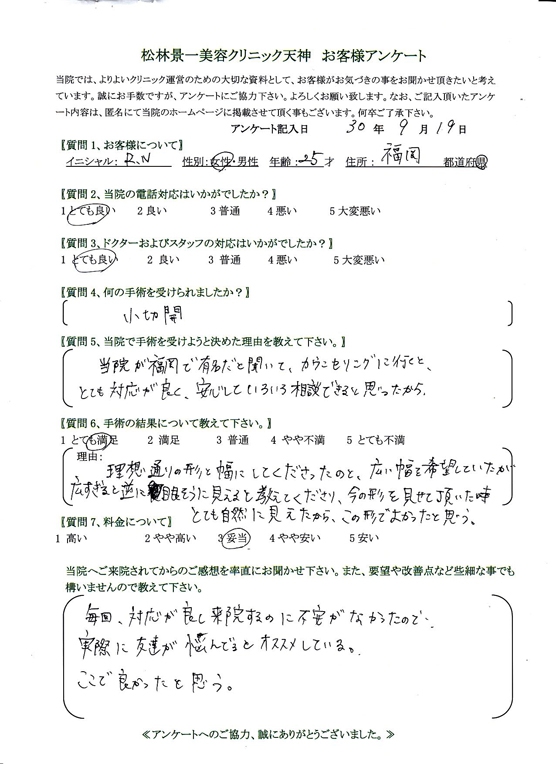 松林景一美容クリニック天神　お客様アンケート
当院では、よりよいクリニック運営のための大切な資料として、お客様がお気づきの事をお聞かせ頂きたいと考え
ています。誠にお手数ですが、アンケートにご協力下さい。よろしくお願い致します。なお、ご記入頂いたアンケ
ート内容は、匿名にて当院のホームページに掲載させて頂く事もございます。何卒ご了承下さい。
アンケート記入日　30 年 9 月 19 日
〖質問 1、お客様について〗
イニシャル: R.N　性別: 女性・男性　年齢: 25 才　住所: 福岡　都道府県
〖質問 2、当院の電話対応はいかがでしたか？〗
1 とても良い　2 良い　3 普通　4 悪い　5 大変悪い
〖質問 3、ドクターおよびスタッフの対応はいかがでしたか？〗
1 とても良い　2 良い　3 普通　4 悪い　5 大変悪い
〖質問 4、何の手術を受けられましたか？〗
小切開
〖質問 5、当院で手術を受けようと決めた理由を教えて下さい。〗
当院が福岡で有名だと聞いて、カウンセリングに行くと、
とても対応が良く、安心していろいろ相談できると思ったから。
〖質問 6、手術の結果について教えて下さい。〗
1 とても満足　2 満足　3 普通　4 やや不満　5 とても不満
理由:
理想通りの形と幅にしてくださったのと、広い幅を希望していたが
広すぎると逆に眠そうに見えると教えてくださり、今の形を見せて頂いた時
とても自然に見えたから、この形でよかったと思う。
〖質問 7、料金について〗
1 高い　2 やや高い　3 妥当　4 やや安い　5 安い
当院へご来院されてからのご感想を率直にお聞かせ下さい。また、要望や改善点など些細な事でも
構いませんので教えて下さい。
毎回、対応が良く来院するのに不安がなかったので、
実際に友達が悩んでるとオススメしている。
ここで良かったと思う。
≪アンケートへのご協力、誠にありがとうございました。≫